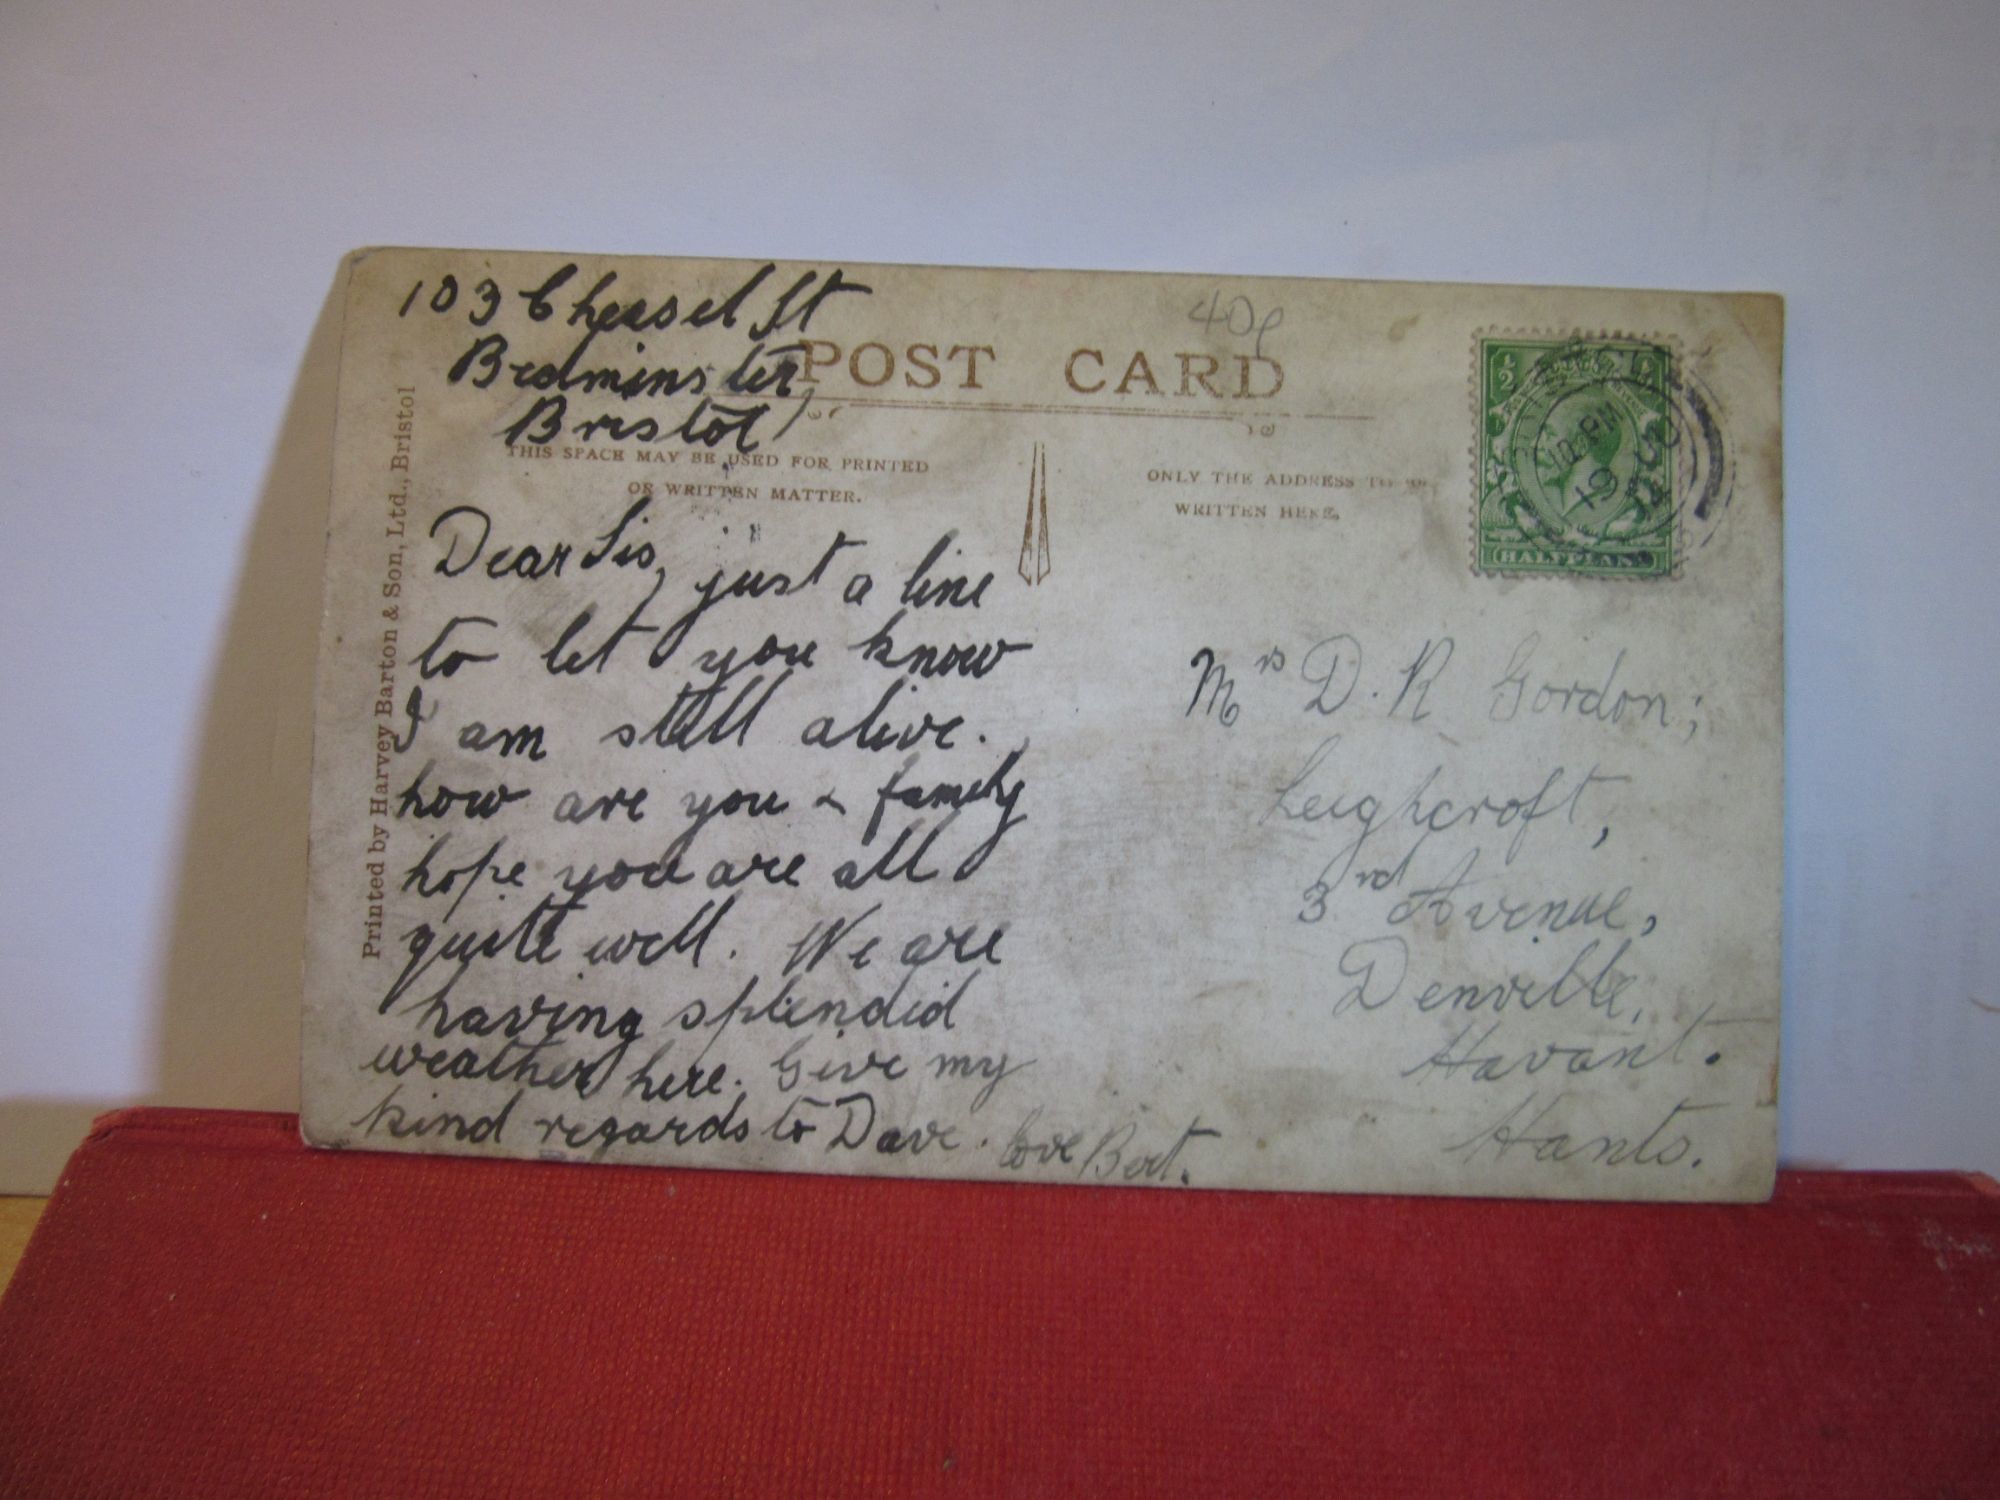 103 Cheasel St
Bedminster,
Bristol
40p
POST CARD
THIS SPACE MAY BE USED FOR PRINTED
OR WRITTEN MATTER.
ONLY THE ADDRESS TO BE
WRITTEN HERE.
Printed by Harvey Barton & Son, Ltd., Bristol
Dear Sis, just a line
to let you know
I am still alive.
how are you & family
hope you are all
quite well. We are
having splendid
weather here. Give my
kind regards to Dave. love Bert.
½
HALFPENNY
10. PM
19 JU
14
Mrs D. R Gordon;
Leighcroft,
3rd Avenue,
Denville,
Havant.
Hants.